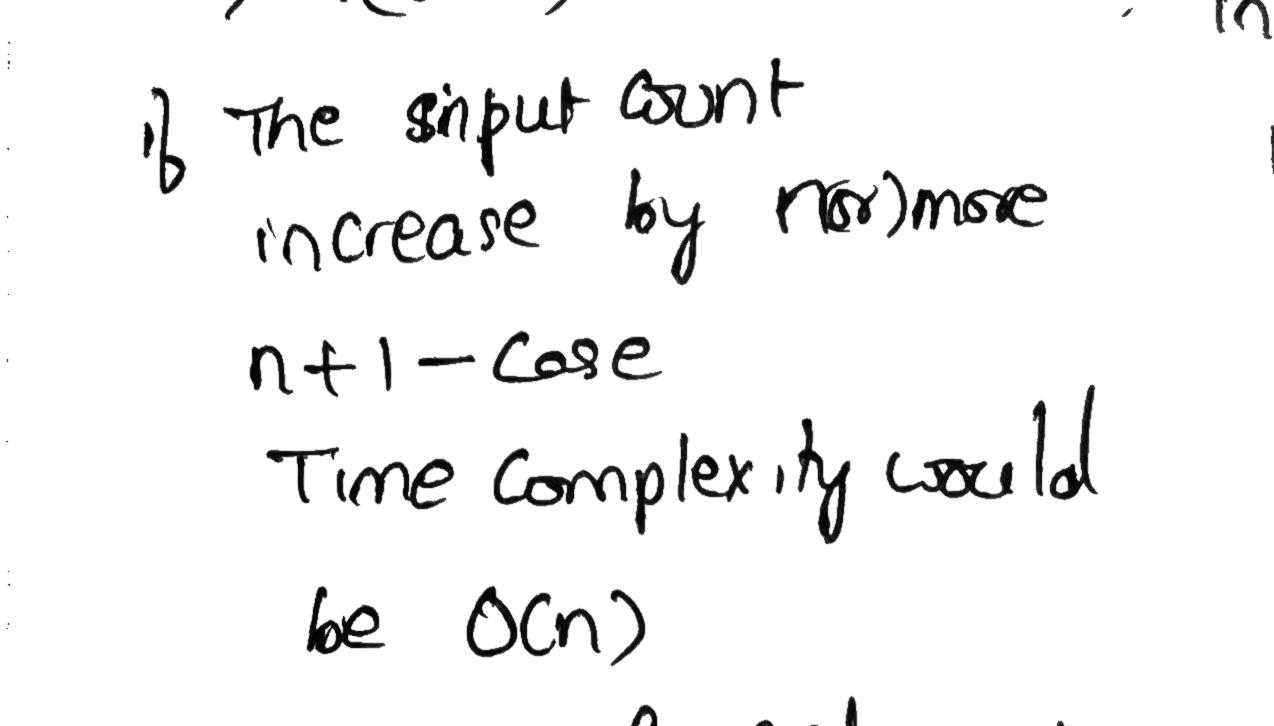 if The input count
increase by n(or)more
n+1-case
Time complexity would
be O(n)